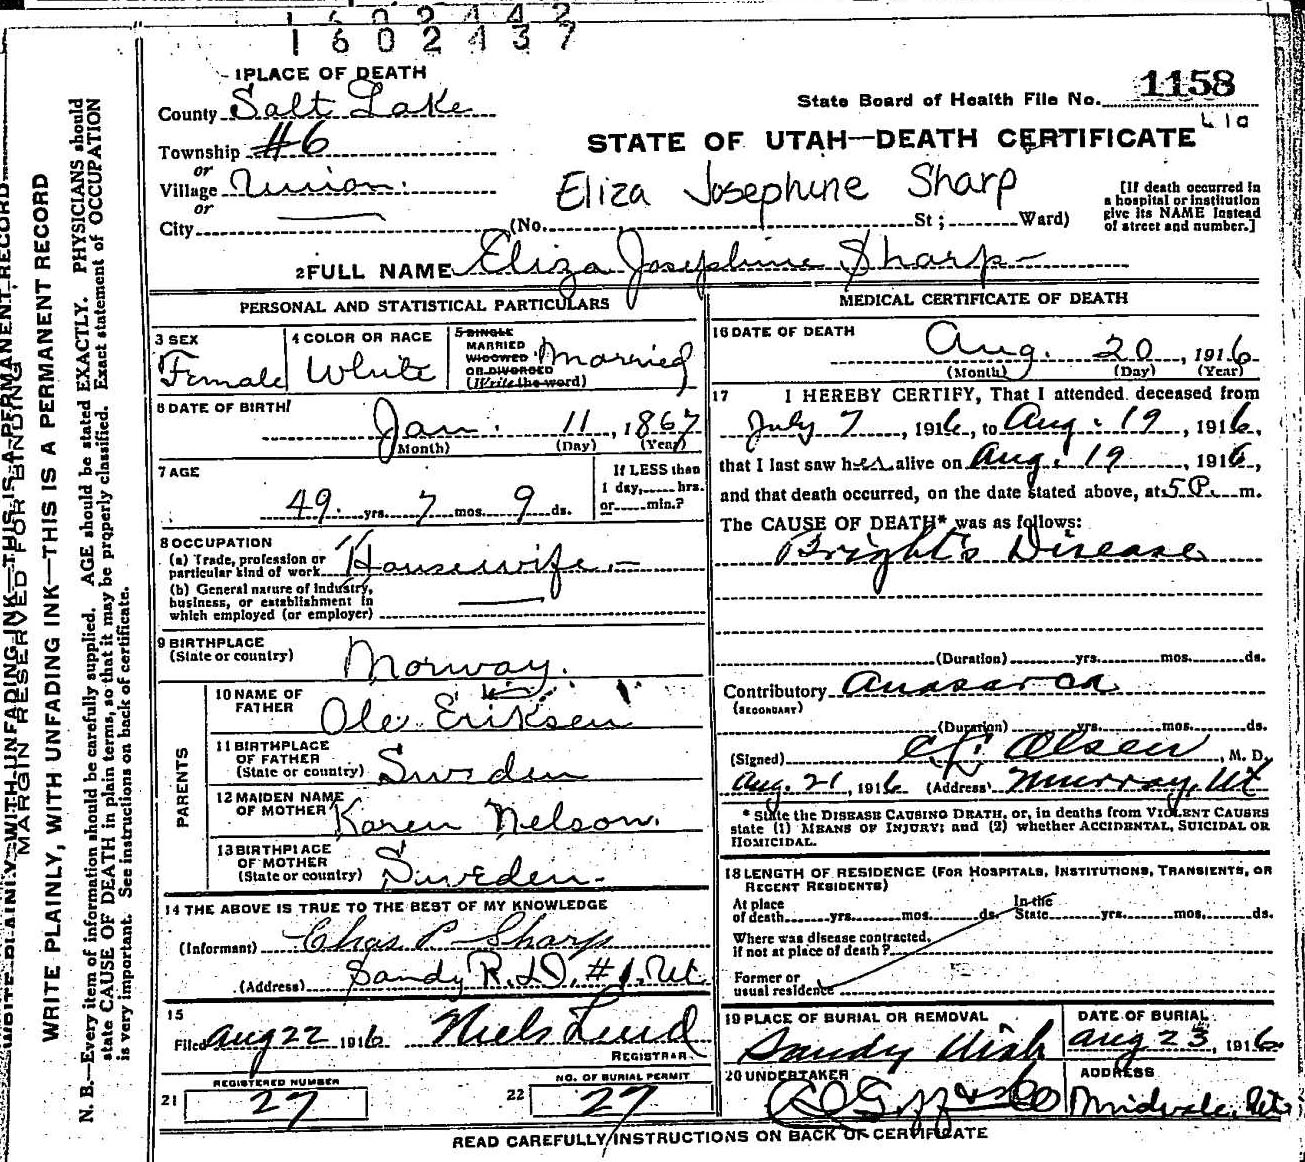 1602442
1602437
1 PLACE OF DEATH
County Salt Lake
Township #6
or
Village Union.
or
City
State Board of Health File No. 1158
STATE OF UTAH—DEATH CERTIFICATE
Eliza Josephine Sharp
(No. St ; Ward)
[If death occurred in a hospital or institution give its NAME instead of street and number.]
2 FULL NAME Eliza Josephine Sharp
PERSONAL AND STATISTICAL PARTICULARS
3 SEX
Female
4 COLOR OR RACE
White
5 SINGLE
MARRIED
WIDOWED
OR DIVORCED
(Write the word)
Married
6 DATE OF BIRTH
Jan. 11, 1867
(Month) (Day) (Year)
7 AGE
49 yrs. 7 mos. 9 ds.
If LESS than
1 day, hrs.
or min.?
8 OCCUPATION
(a) Trade, profession or
particular kind of work Housewife
(b) General nature of industry,
business, or establishment in
which employed (or employer)
9 BIRTHPLACE
(State or country)
Norway.
PARENTS
10 NAME OF
FATHER
Ole Eriksen
11 BIRTHPLACE
OF FATHER
(State or country) Sweden
12 MAIDEN NAME
OF MOTHER Karen Nelson.
13 BIRTHPLACE
OF MOTHER
(State or country) Sweden.
14 THE ABOVE IS TRUE TO THE BEST OF MY KNOWLEDGE
(Informant) Chas P Sharp
(Address) Sandy R.F.D. #1. Ut.
15
Filed Aug 22 1916 Niels Lind
REGISTRAR
REGISTERED NUMBER
21 27
NO. OF BURIAL PERMIT
22 27
MEDICAL CERTIFICATE OF DEATH
16 DATE OF DEATH
Aug. 20, 1916
(Month) (Day) (Year)
17 I HEREBY CERTIFY, That I attended deceased from
July 7, 1916, to Aug. 19, 1916,
that I last saw her alive on Aug. 19, 1916,
and that death occurred, on the date stated above, at 5 P. m.
The CAUSE OF DEATH* was as follows:
Bright's Disease
(Duration) yrs. mos. ds.
Contributory Anasarca
(SECONDARY)
(Duration) yrs. mos. ds.
(Signed) Olsen, M. D.
Aug. 21, 1916 (Address) Murray, Ut
* State the DISEASE CAUSING DEATH, or, in deaths from VIOLENT CAUSES
state (1) MEANS OF INJURY; and (2) whether ACCIDENTAL, SUICIDAL OR
HOMICIDAL.
18 LENGTH OF RESIDENCE (FOR HOSPITALS, INSTITUTIONS, TRANSIENTS, OR
RECENT RESIDENTS)
At place
of death yrs. mos. ds. In the State yrs. mos. ds.
Where was disease contracted,
if not at place of death?
Former or
usual residence
19 PLACE OF BURIAL OR REMOVAL
Sandy Utah
DATE OF BURIAL
Aug 23, 1916
20 UNDERTAKER
ADDRESS
Midvale, Ut
READ CAREFULLY INSTRUCTIONS ON BACK OF CERTIFICATE
MARGIN RESERVED FOR BINDING
WRITE PLAINLY, WITH UNFADING INK—THIS IS A PERMANENT RECORD
WRITE PLAINLY, WITH UNFADING INK—THIS IS A PERMANENT RECORD
N. B.—Every item of information should be carefully supplied. AGE should be stated EXACTLY. PHYSICIANS should
state CAUSE OF DEATH in plain terms, so that it may be properly classified. Exact statement of OCCUPATION
is very important. See instructions on back of certificate.